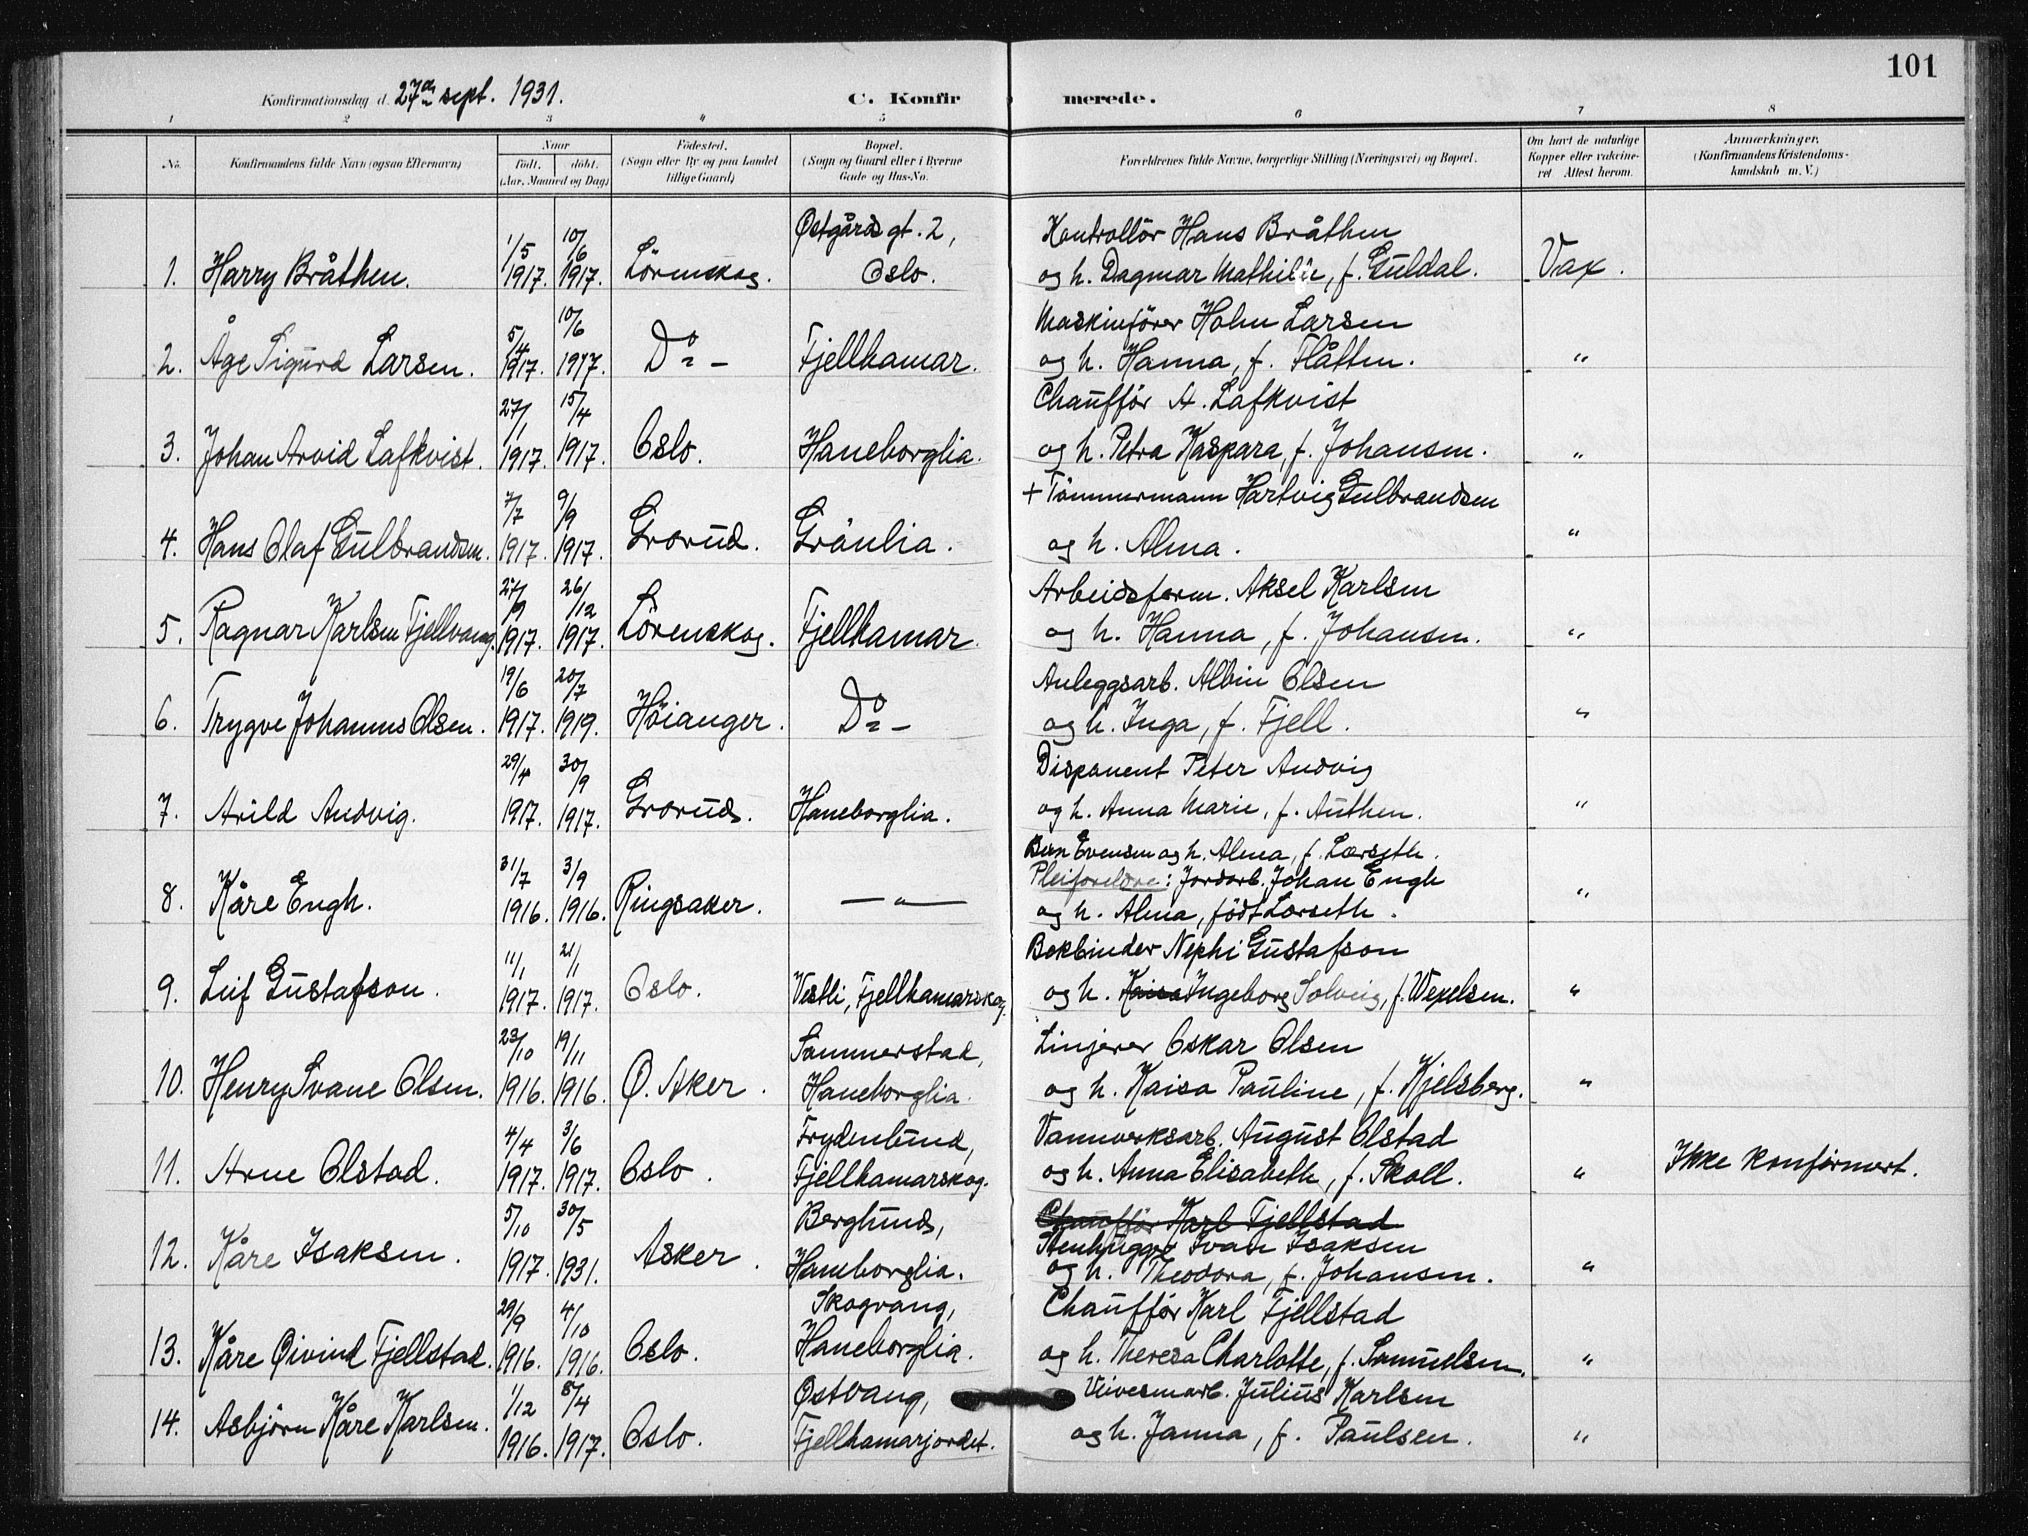 101
Konfirmationsdag d. 27de sept. 1931.
C. Konfirmerede.
1 2 3 4 5 6 7 8
No. Konfirmandens fulde Navn (ogsaa Efternavn) Naar født. døbt. (Aar, Maaned og Dag) Fødested. (Sogn eller By og paa Landet tillige Gaard) Bopæl. (Sogn og Gaard eller i Byerne Gade og Hus-No. Forældrenes fulde Navne, borgerlige Stilling (Næringsvei) og Bopæl. Om havt de naturlige Kopper eller vakcineret Attest herom. Anmærkninger. (Konfirmandens Kristendomskundskab m. V.)
1/5 10/6 Østgårds gt. 2, Kontrollör Hans Bråthen
1. Harry Bråthen. 1917. 1917. Lörenskog. Oslo. og h. Dagmar Mathilde, f. Guldal. Vax.
5/4 10/6 Maskinförer Holm Larsen
2. Åge Sigurd Larsen. 1917. 1917. Do - Fjellhamar. og h. Hanna, f. Flåtten. "
27/1 15/4 Chaufför A. Lafkvist
3. Johan Arvid Lafkvist. 1917. 1917. Oslo. Haneborglia. og h. Petra Kaspara, f. Johansen. "
7/7 9/9 + Tömmermann Hartvig Gulbrandsen
4. Hans Olaf Gulbrandsen. 1917. 1917. Grorud. Grönlia. og h. Alma. "
27/9 26/12 Arbeidsform. Aksel Karlsen
5. Ragnar Karlsen Fjellvang. 1917. 1917. Lörenskog. Fjellhamar. og h. Hanna, f. Johansen. "
19/6 20/7 Anleggsarb. Albin Olsen
6. Trygve Johannes Olsen. 1917. 1919. Höianger. Do - og h. Inga, f. Fjell. "
29/4 30/9 Disponent Peter Andvig
7. Arild Andvig. 1917. 1917. Grorud. Haneborglia. og h. Anna Marie, f. Authen. "
Evensen og h. Alma, f. Lærseth.
31/7 3/9 Pleiforeldre: Jordarb. Johan Engh
8. Kåre Engh. 1916. 1916. Ringsaker. — " — og h. Alma, født Lærseth. "
11/1 21/1 Bokbinder Nephi Gustafson
9. Leif Gustafson. 1917. 1917. Oslo. Vestli, Fjellhamarskog. og h. Kaisa Ingeborg Solveig, f. Wexelsen. "
23/10 19/11 Sommerstad, Linjerer Oskar Olsen
10. Henry Svane Olsen. 1916. 1916. Ø. Aker. Haneborglia. og h. Kaisa Pauline, f. Kjelsberg. "
4/4 3/6 Frydenlund, Vannverksarb. August Olstad
11. Arne Olstad. 1917. 1917. Oslo. Fjellhamarskog. og h. Anna Elisabeth, f. Skoll. " Ikke konfirmert.
5/10 30/5 Berglund, Chaufför Karl Fjellstad
Stenhugger Ivar Isaksen
12. Kåre Isaksen. 1917. 1931. Asker. Haneborglia. og h. Theodora, f. Johansen. "
29/9 4/10 Skogvang, Chaufför Karl Fjellstad
13. Kåre Øivind Fjellstad. 1916. 1916. Oslo. Haneborglia. og h. Theresa Charlotte, f. Samuelsen. "
1/12 8/4 Østvang, Veivesenarb. Julius Karlsen
14. Asbjörn Kåre Karlsen. 1916. 1917. Oslo. Fjellhamarjordet. og h. Janna, f. Paulsen. "